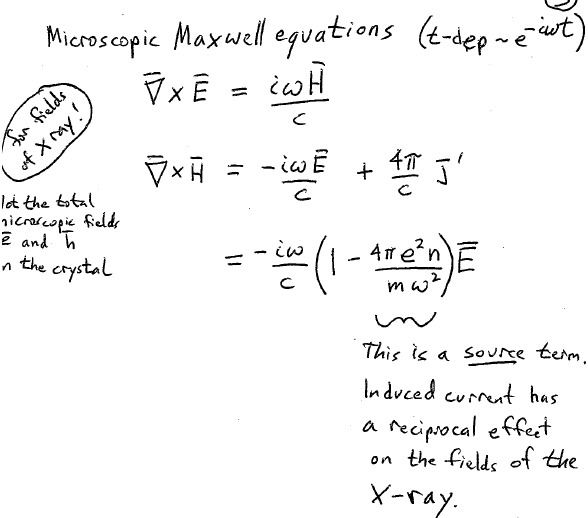 Microscopic Maxwell equations (t-dep ~ e^-iωt)
∇̄ × Ē = iωH̄/c
for fields
of X ray!
∇̄ × H̄ = -iωĒ/c + 4π/c J̄'
let the total
microscopic fields
ē and h̄
n the crystal
= -iω/c (1 - 4πe²n/mω²) Ē
This is a source term.
Induced current has
a reciprocal effect
on the fields of the
X-ray.